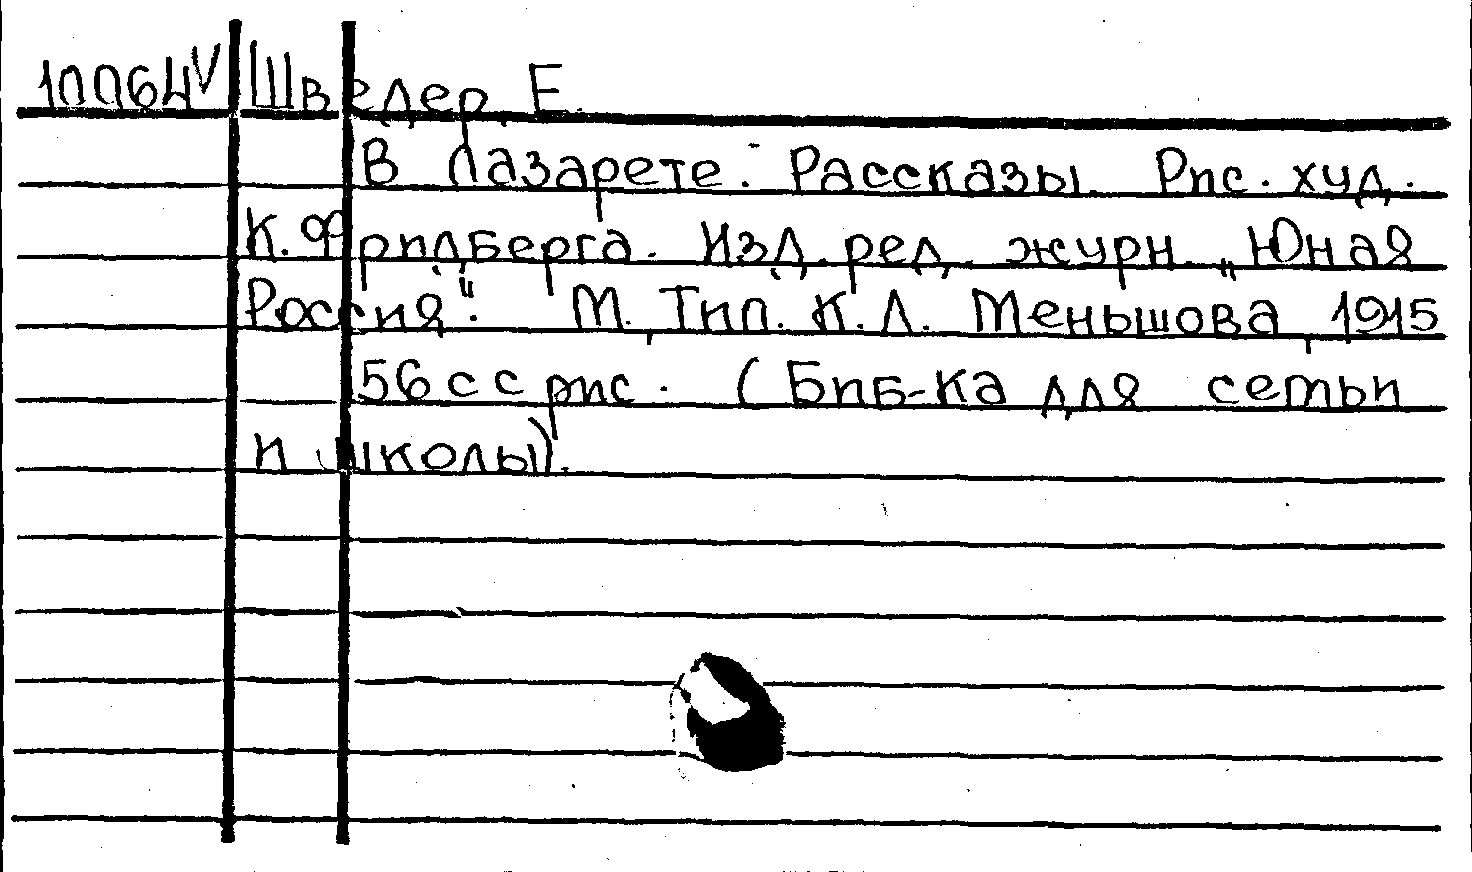 10064V Шведер, Е.
В лазарете. Рассказы. Рис. худ.
К. Фридберга. Изд. ред. журн. „Юная
Россия". М., Тип. К. Л. Меньшова, 1915
56 с с рис. (Биб-ка для семьи
и школы).